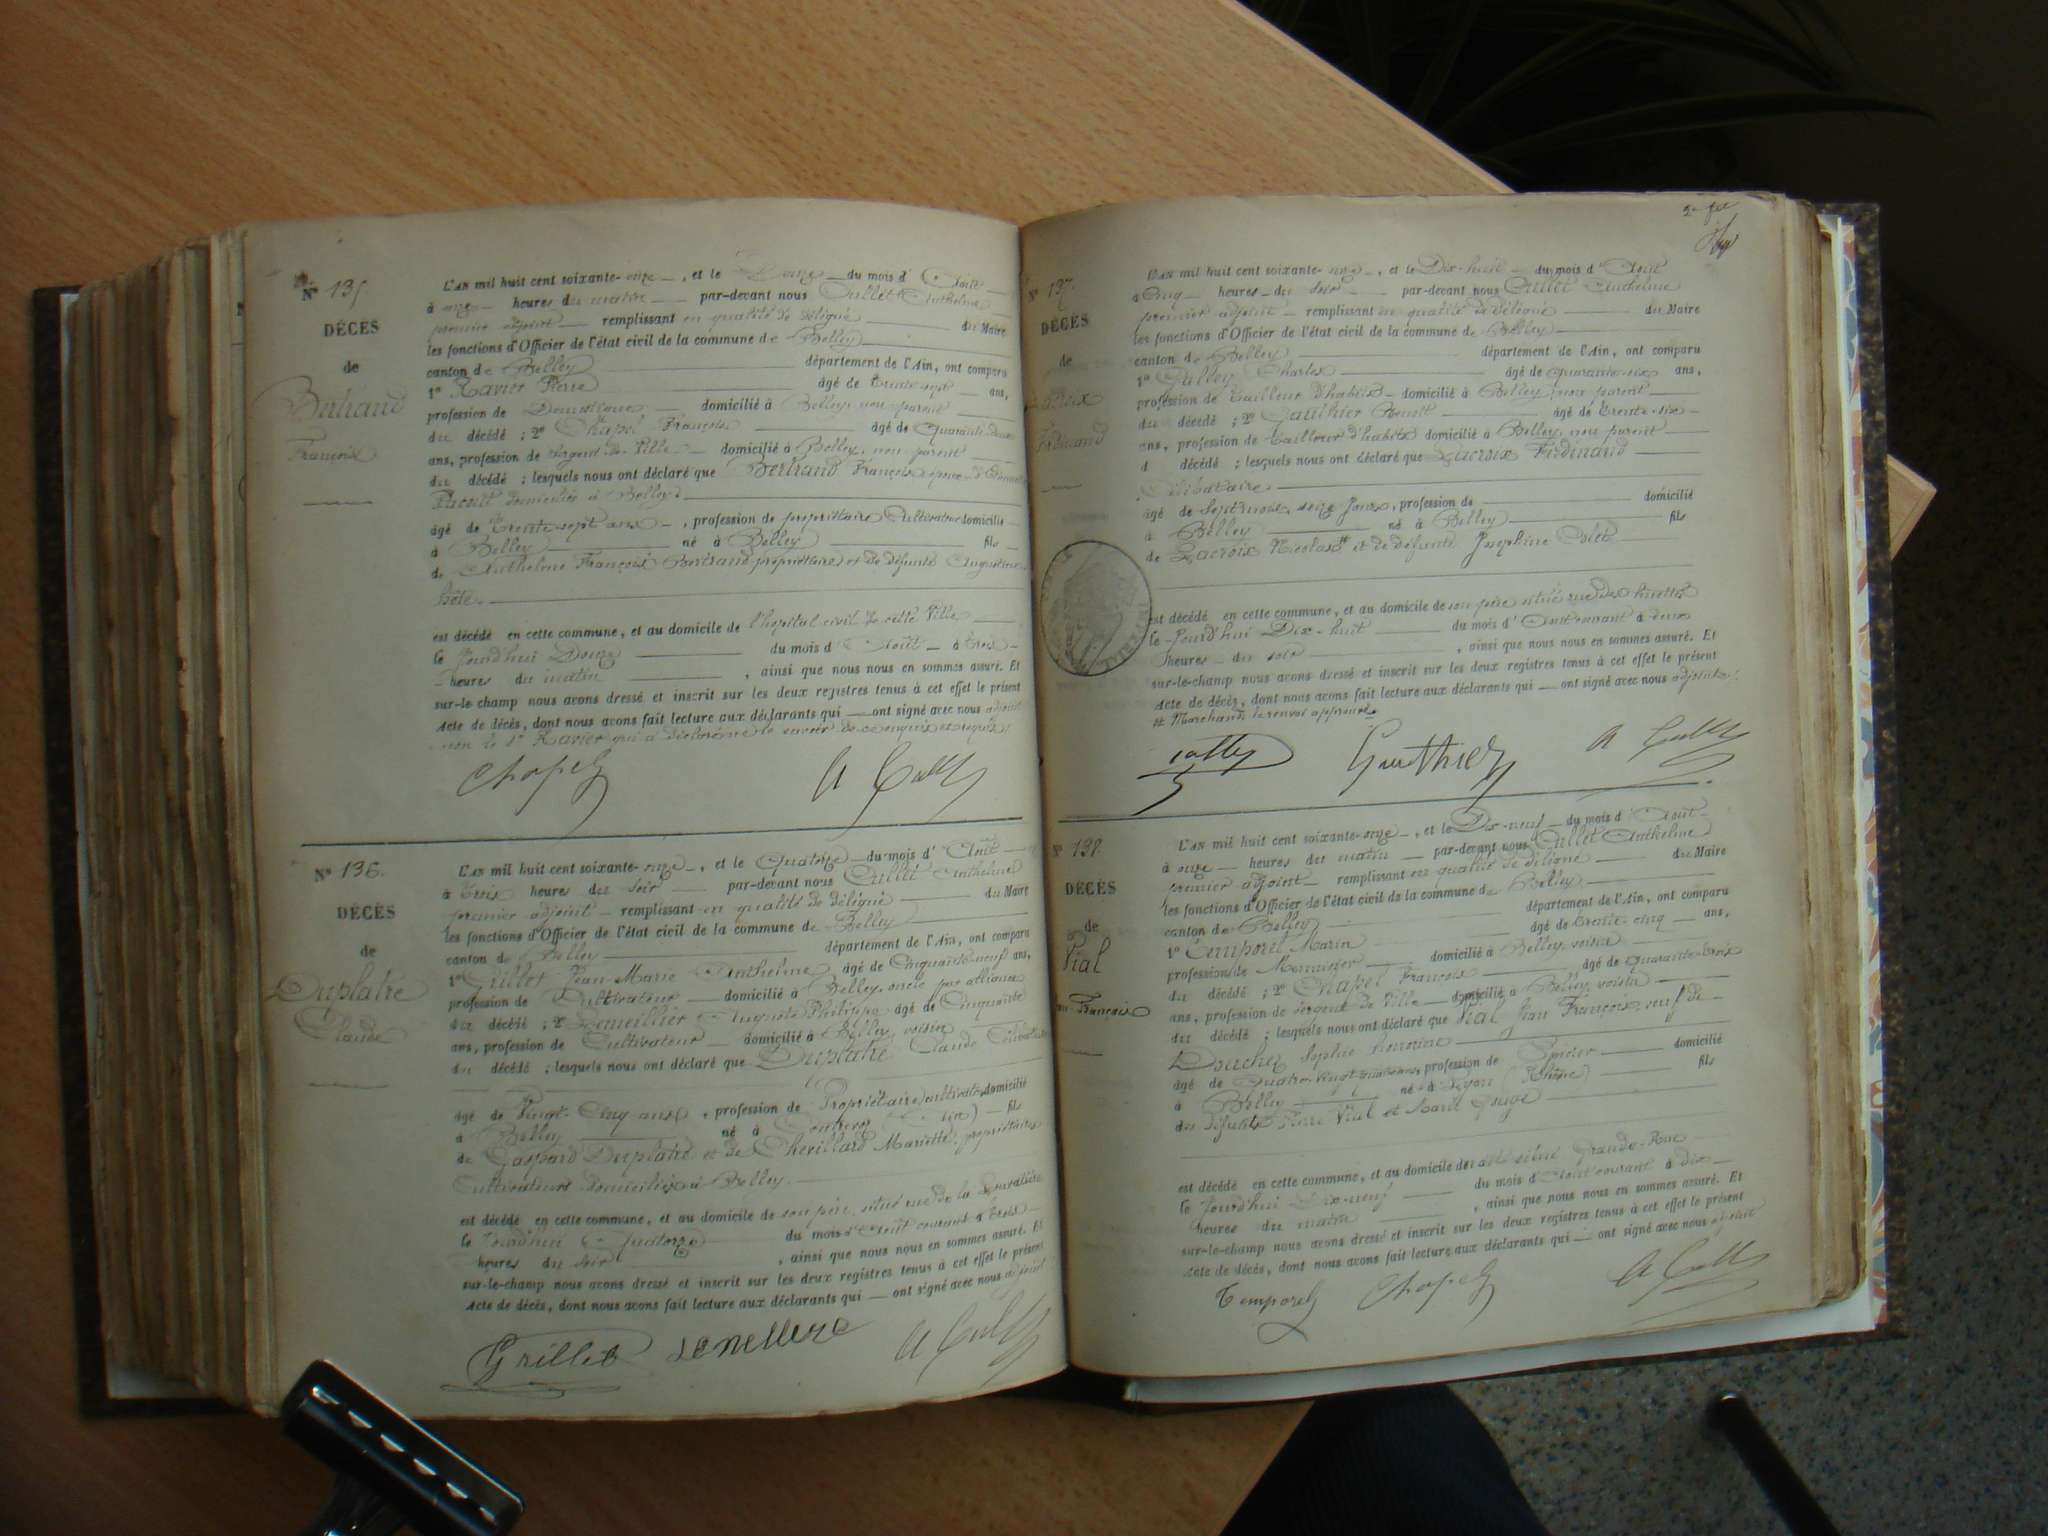 Nº 135
DÉCÈS
de
Bertrand
François
L'AN mil huit cent soixante-onze, et le Douze du mois d'Août
à onze heures du matin par-devant nous Cullet Anthelme
premier adjoint remplissant en qualité de délégué du Maire
les fonctions d'Officier de l'état civil de la commune de Belley
canton de Belley département de l'Ain, ont comparu
1º Ravier Pierre âgé de trente sept ans,
profession de Domestique domicilié à Belley, non parent
du décédé ; 2º Chapel François âgé de Quarante-deux
ans, profession de sergent de Ville domicilié à Belley, non parent
du décédé ; lesquels nous ont déclaré que Bertrand François époux
domicilié à Belley
âgé de Trente sept ans, profession de propriétaire Cultivateur domicilié
à Belley né à Belley fils
de Anthelme François Bertrand propriétaire et de défunte
est décédé en cette commune, et au domicile de l'hopital civil de cette Ville
le Jourd'hui Douze du mois d'Août à trois
heures du matin, ainsi que nous nous en sommes assuré. Et
sur-le champ nous avons dressé et inscrit sur les deux registres tenus à cet effet le présent
Acte de décès, dont nous avons fait lecture aux déclarants qui ont signé avec nous adjoint
non le 1er Ravier qui a déclaré ne le savoir de ce enquis et requis
Chapel A Cullet
Nº 136.
DÉCÈS
de
Duplatre
Claude
L'AN mil huit cent soixante-onze, et le Quatorze du mois d'Août
à Trois heures du soir par-devant nous Cullet Anthelme
premier adjoint remplissant en qualité de délégué du Maire
les fonctions d'Officier de l'état civil de la commune de Belley
canton de Belley département de l'Ain, ont comparu
1º Grillet Jean-Marie Anthelme âgé de Cinquante-neuf ans,
profession de Cultivateur domicilié à Belley, oncle par alliance
du décédé ; 2º Auguste Philippe âgé de Cinquante
ans, profession de Cultivateur domicilié à Belley voisin
du décédé ; lesquels nous ont déclaré que Duplatre Claude Célibataire
âgé de Vingt-Cinq ans, profession de Propriétaire cultivateur domicilié
à Belley né à (Ain) fils
de Gaspard Duplatre et de Chevillard Mariette, propriétaires
Cultivateurs domiciliés à Belley.
est décédé en cette commune, et au domicile de son père, situé rue de la
le Jourd'hui Quatorze du mois d'Août courant à Trois
heures du soir, ainsi que nous nous en sommes assuré. Et
sur-le-champ nous avons dressé et inscrit sur les deux registres tenus à cet effet le présent
Acte de décès, dont nous avons fait lecture aux déclarants qui ont signé avec nous adjoint
Grillet A Cullet
Nº 137.
DÉCÈS
de
Lacroix
Ferdinand
L'AN mil huit cent soixante-onze, et le Dix-huit du mois d'Août
à Cinq heures du soir par-devant nous Cullet Anthelme
premier adjoint remplissant en qualité de délégué du Maire
les fonctions d'Officier de l'état civil de la commune de Belley
canton de Belley département de l'Ain, ont comparu
1º Charles âgé de quarante-six ans,
profession de Tailleur d'habits domicilié à Belley, non parent
du décédé ; 2º Gauthier Benoit âgé de trente-six
ans, profession de tailleur d'habits domicilié à Belley, non parent
d décédé ; lesquels nous ont déclaré que Lacroix Ferdinand
Célibataire
âgé de sept mois, seize jours, profession de domicilié
à Belley né à Belley fils
de Lacroix Nicolas # et de défunte Joséphine
est décédé en cette commune, et au domicile de son père situé rue des
le Jourd'hui Dix-huit du mois d'Août courant à deux
heures du soir, ainsi que nous nous en sommes assuré. Et
sur-le-champ nous avons dressé et inscrit sur les deux registres tenus à cet effet le présent
Acte de décès, dont nous avons fait lecture aux déclarants qui ont signé avec nous adjoint.
# Marchand le renvoi approuvé.
Gauthier A Cullet
Nº 138.
DÉCÈS
de
Vial
Jean-François
L'AN mil huit cent soixante-onze, et le Dix-neuf du mois d'Août
à onze heures du matin par-devant nous Cullet Anthelme
premier adjoint remplissant en qualité de délégué du Maire
les fonctions d'Officier de l'état civil de la commune de Belley
canton de Belley département de l'Ain, ont comparu
1º Temporel Marin âgé de trente-cinq ans,
profession de Menuisier domicilié à Belley, voisin
du décédé ; 2º Chapel François âgé de quarante-trois
ans, profession de sergent de Ville domicilié à Belley, voisin
du décédé ; lesquels nous ont déclaré que Vial Jean François, veuf de
Sophie
âgé de Quatre-vingt, profession de Epicier domicilié
à Belley né à Lyon (Rhône) fils
des défunts Pierre Vial et Marie
est décédé en cette commune, et au domicile de situé Grande-Rue
le Jourd'hui Dix-neuf du mois d'Août courant à dix
heures du matin, ainsi que nous nous en sommes assuré. Et
sur-le-champ nous avons dressé et inscrit sur les deux registres tenus à cet effet le présent
Acte de décès, dont nous avons fait lecture aux déclarants qui ont signé avec nous adjoint
Temporel Chapel A Cullet